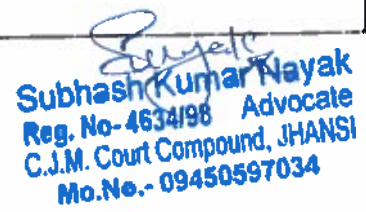 Subhash Kumar Nayak
Reg. No- 4634/98 Advocate
C.J.M. Court Compound, JHANSI
Mo.No.- 09450597034